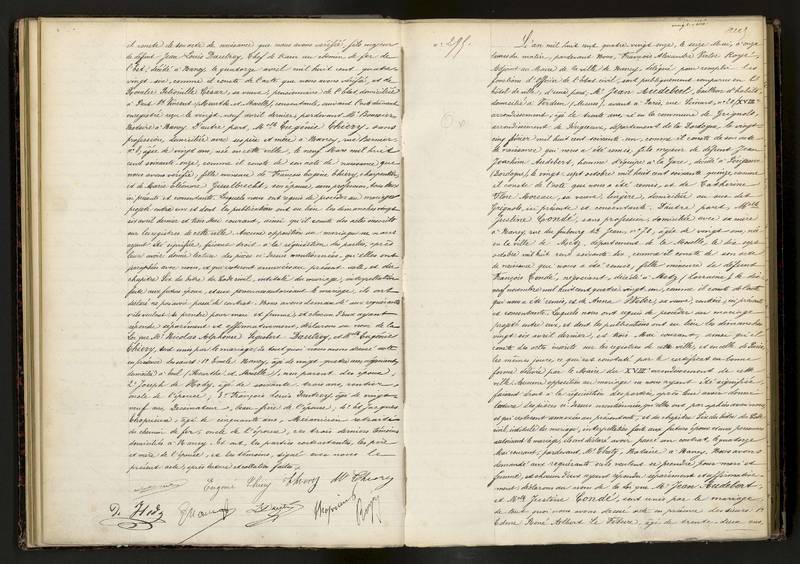 et conste de son acte de naissance que nous avons vérifié, fils majeur
de défunt Jean Louis Dautroy, Chef de train au chemin de fer de
l'Est, décédé à Nancy, le quatorze avril mil huit cent quatre
vingt six, comme il conste de l'acte que nous avons vérifié, et de
sa veuve, pensionnaire de l'État, domiciliée
à Pont St Vincent (Meurthe et Moselle), consentante, suivant l'acte dûment
enregistré reçu le vingt neuf avril dernier, pardevant Me
Notaire à Nancy. D'autre part, Melle Eugénie Thiéry, sans
profession, domiciliée avec ses père et mère à Nancy, rue
âgée de vingt ans, née en cette ville, le neuf Mars mil huit
cent soixante onze, comme il conste de son acte de naissance que
nous avons vérifié, fille mineure de François Eugène Thiéry, charpentier,
et de Marie Eléonore son épouse, sans profession, tous deux
ici présents et consentants. Lesquels nous ont requis de procéder au mariage
projeté entre eux et dont les publications ont eu lieu les dimanches vingt
six avril dernier et trois Mai courant, ainsi qu'il conste des actes inscrits
sur les registres de cette ville. Aucune opposition au mariage ne nous
ayant été signifiée, faisant droit à la réquisition des parties, après
leur avoir donné lecture des pièces ci dessus mentionnées, qu'elles ont
paraphées avec nous, et qui resteront annexées au présent acte, et du
chapitre six du titre du Code civil, intitulé du mariage, interpellation
faite aux futurs époux, et aux personnes autorisant le mariage, ils ont
déclaré ne pas avoir passé de contrat. Nous avons demandé aux requérants
s'ils veulent se prendre pour mari et femme, et chacun d'eux ayant
répondu séparément et affirmativement, déclarons au nom de la
loi que Mr Nicolas Alphonse Dautroy, et Melle Eugénie
Thiéry, sont unis par le mariage; de tout quoi nous avons dressé acte
en présence
domicilié à Toul, (Meurthe et Moselle), non parent des époux;
2° Joseph de Hody, âgé de soixante trois ans, rentier,
oncle de l'époux; 3° François Louis Dautroy, âgé de vingt
neuf ans, Dessinateur, frère de l'époux; 4° et Jacques
Chopinux, âgé de cinquante ans, Mécanicien retraité
de chemin de fer, oncle de l'épouse, ces trois derniers témoins
domiciliés à Nancy. Et ont, les parties contractantes, les père
et mère de l'épouse, et les témoins, signé avec nous le
présent acte, après lecture et collation faites.
Eugénie Thiéry Thiéry Me Thiéry
D. Hody
N° 295.
L'an mil huit cent quatre vingt onze, le seize Mai, à onze
heures du matin, pardevant Nous, François Alexandre Victor Royé,
Adjoint au Maire de la ville de Nancy, délégué pour remplir les
fonctions d'Officier de l'état civil, ont publiquement comparu en l'
hôtel de ville, d'une part, Mr Jean Audebert, tailleur d'habits,
domicilié à Verdun, (Meuse), avant à Paris, rue XVIIIe
arrondissement, âgé de trente ans, né en la commune de Grignols,
arrondissement de Périgueux, département de la Dordogne, le vingt-
cinq février mil huit cent soixante un, comme il conste de son acte
de naissance qui nous a été remis, fils majeur de défunt Jean
Joachim Audebert, homme d'équipe à la Gare, décédé à Périgueux
(Dordogne), le vingt sept octobre mil huit cent soixante quinze, comme
il conste de l'acte qui nous a été remis, et de Catherine
Flore Moreau, sa veuve, lingère, domiciliée au dit
Grignols, ici présente et consentante. D'autre part, Melle
Justine Condé, sans profession, domiciliée avec sa mère
à Nancy, rue du faubourg St Jean, n° 78, âgée de vingt ans, née
en la ville de Metz, département de la Moselle, le dix sept
octobre mil huit cent soixante dix, comme il conste de son acte
de naissance qui nous a été remis, fille mineure de défunt
François Condé, négociant, décédé à Metz, (Lorraine), le dix
neuf novembre mil huit cent quatre vingt un, comme il conste de l'acte
qui nous a été remis, et de Anna Weber, sa veuve, rentière, ici présente
et consentante. Lesquels nous ont requis de procéder au mariage
projeté entre eux, et dont les publications ont eu lieu les dimanches
vingt six avril dernier, et trois Mai courant, ainsi qu'il
conste des actes inscrits sur les registres de cette ville, et en celle de Paris,
les mêmes jours, ce qui est constaté par le certificat en bonne
forme délivré par le Maire du XVIIIe arrondissement de cette
ville. Aucune opposition au mariage ne nous ayant été signifiée,
faisant droit à la réquisition des parties, après leur avoir donné
lecture des pièces ci dessus mentionnées, qu'elles ont paraphées avec nous
et qui resteront annexées au présent acte, et du chapitre six du titre du Code
civil, intitulé du mariage, interpellation faite aux futurs époux et aux personnes
autorisant le mariage, ils ont déclaré avoir passé un contrat, le quatorze
Mai courant, pardevant Me Notaire à Nancy. Nous avons
demandé aux requérants s'ils veulent se prendre pour mari et
femme, et chacun d'eux ayant répondu séparément et affirmative-
ment, déclarons au nom de la loi que Mr Jean Audebert,
et Melle Justine Condé, sont unis par le mariage
de tout quoi nous avons dressé acte en présence des sieurs 1°
Edme René Albert Le Febvre, âgé de trente deux ans,